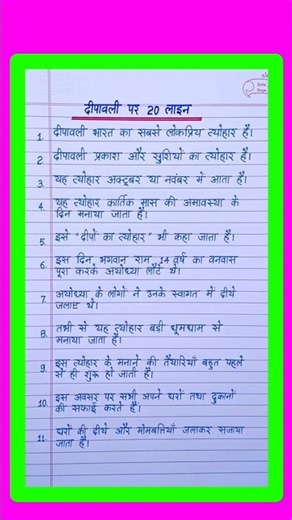 दीपावली पर 20 लाइन
1. दीपावली भारत का सबसे लोकप्रिय त्योहार है।
2. दीपावली प्रकाश और खुशियों का त्योहार है।
3. यह त्योहार अक्टूबर या नवंबर में आता है।
4. यह त्योहार कार्तिक मास की अमावस्या के
दिन मनाया जाता है।
5. इसे "दीपों का त्योहार" भी कहा जाता है।
6. इस दिन भगवान राम 14 वर्ष का वनवास
पूरा करके अयोध्या लौटे थे।
7. अयोध्या के लोगों ने उनके स्वागत में दीये
जलाए थे।
8. तभी से यह त्योहार बड़ी धूमधाम से
मनाया जाता है।
9. इस त्योहार के मनाने की तैयारियाँ बहुत पहले
से ही शुरू हो जाती है।
10. इस अवसर पर सभी अपने घरों तथा दुकानों
की सफाई करते हैं।
11. घरों की दीये और मोमबत्तियाँ जलाकर सजाया
जाता है।